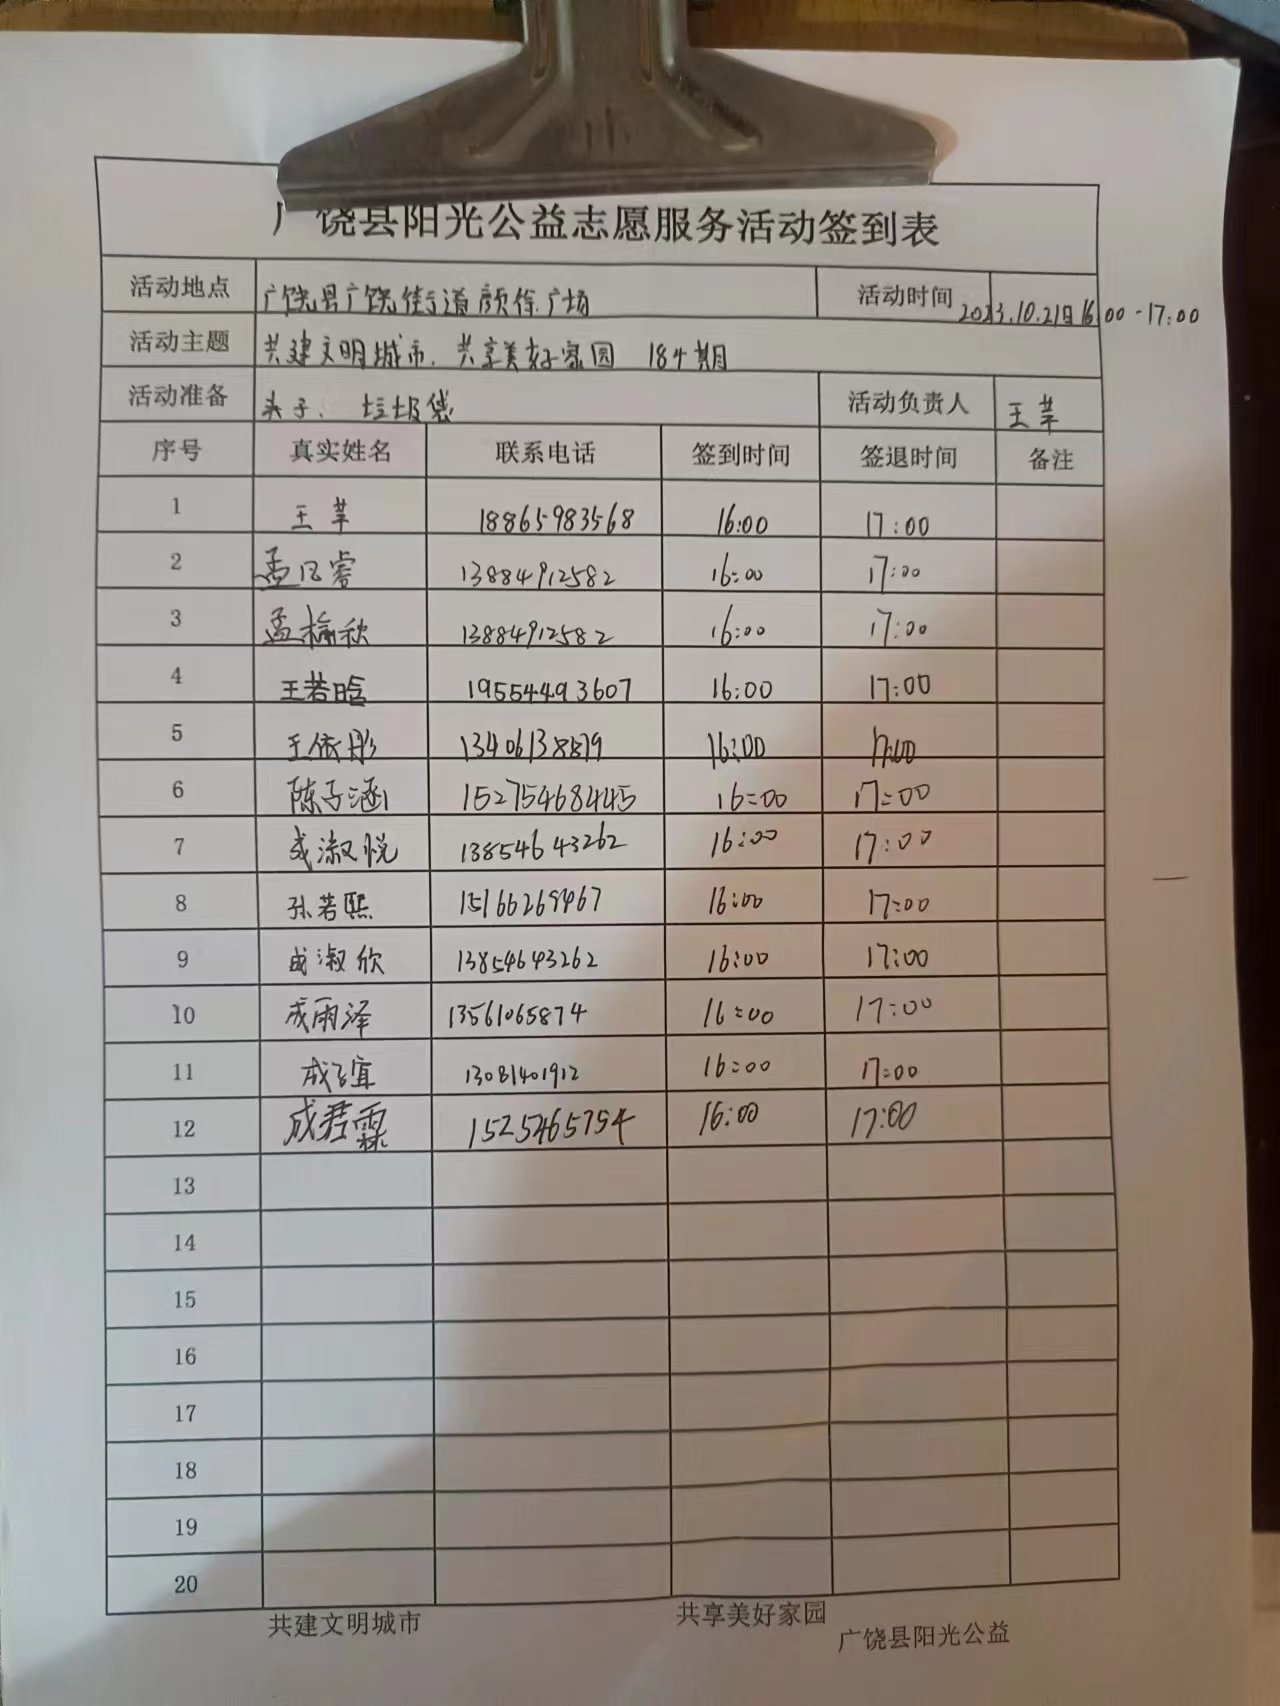 广饶县阳光公益志愿服务活动签到表
活动地点 广饶县广饶街道颜徐广场 活动时间 2023.10.21日16:00-17:00
活动主题 共建文明城市.共享美好家园 184期
活动准备 夹子、垃圾袋 活动负责人 王苹
序号 真实姓名 联系电话 签到时间 签退时间 备注
1 王苹 18865983568 16:00 17:00
2 孟凡睿 13884912582 16:00 17:00
3 孟榆秋 13884912582 16:00 17:00
4 王若晗 19554493607 16:00 17:00
5 王依彤 13406138879 16:00 17:00
6 陈子涵 15275468445 16:00 17:00
7 成淑悦 13854643262 16:00 17:00
8 孙若熙 15166269467 16:00 17:00
9 成淑欣 13854643262 16:00 17:00
10 成雨泽 13561065874 16:00 17:00
11 13081401912 16:00 17:00
12 成君霖 16:00 17:00
13
14
15
16
17
18
19
20
共建文明城市 共享美好家园 广饶县阳光公益